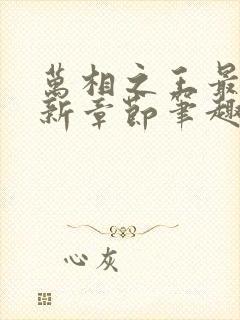 萬相之王最
新章節筆趣
心灰